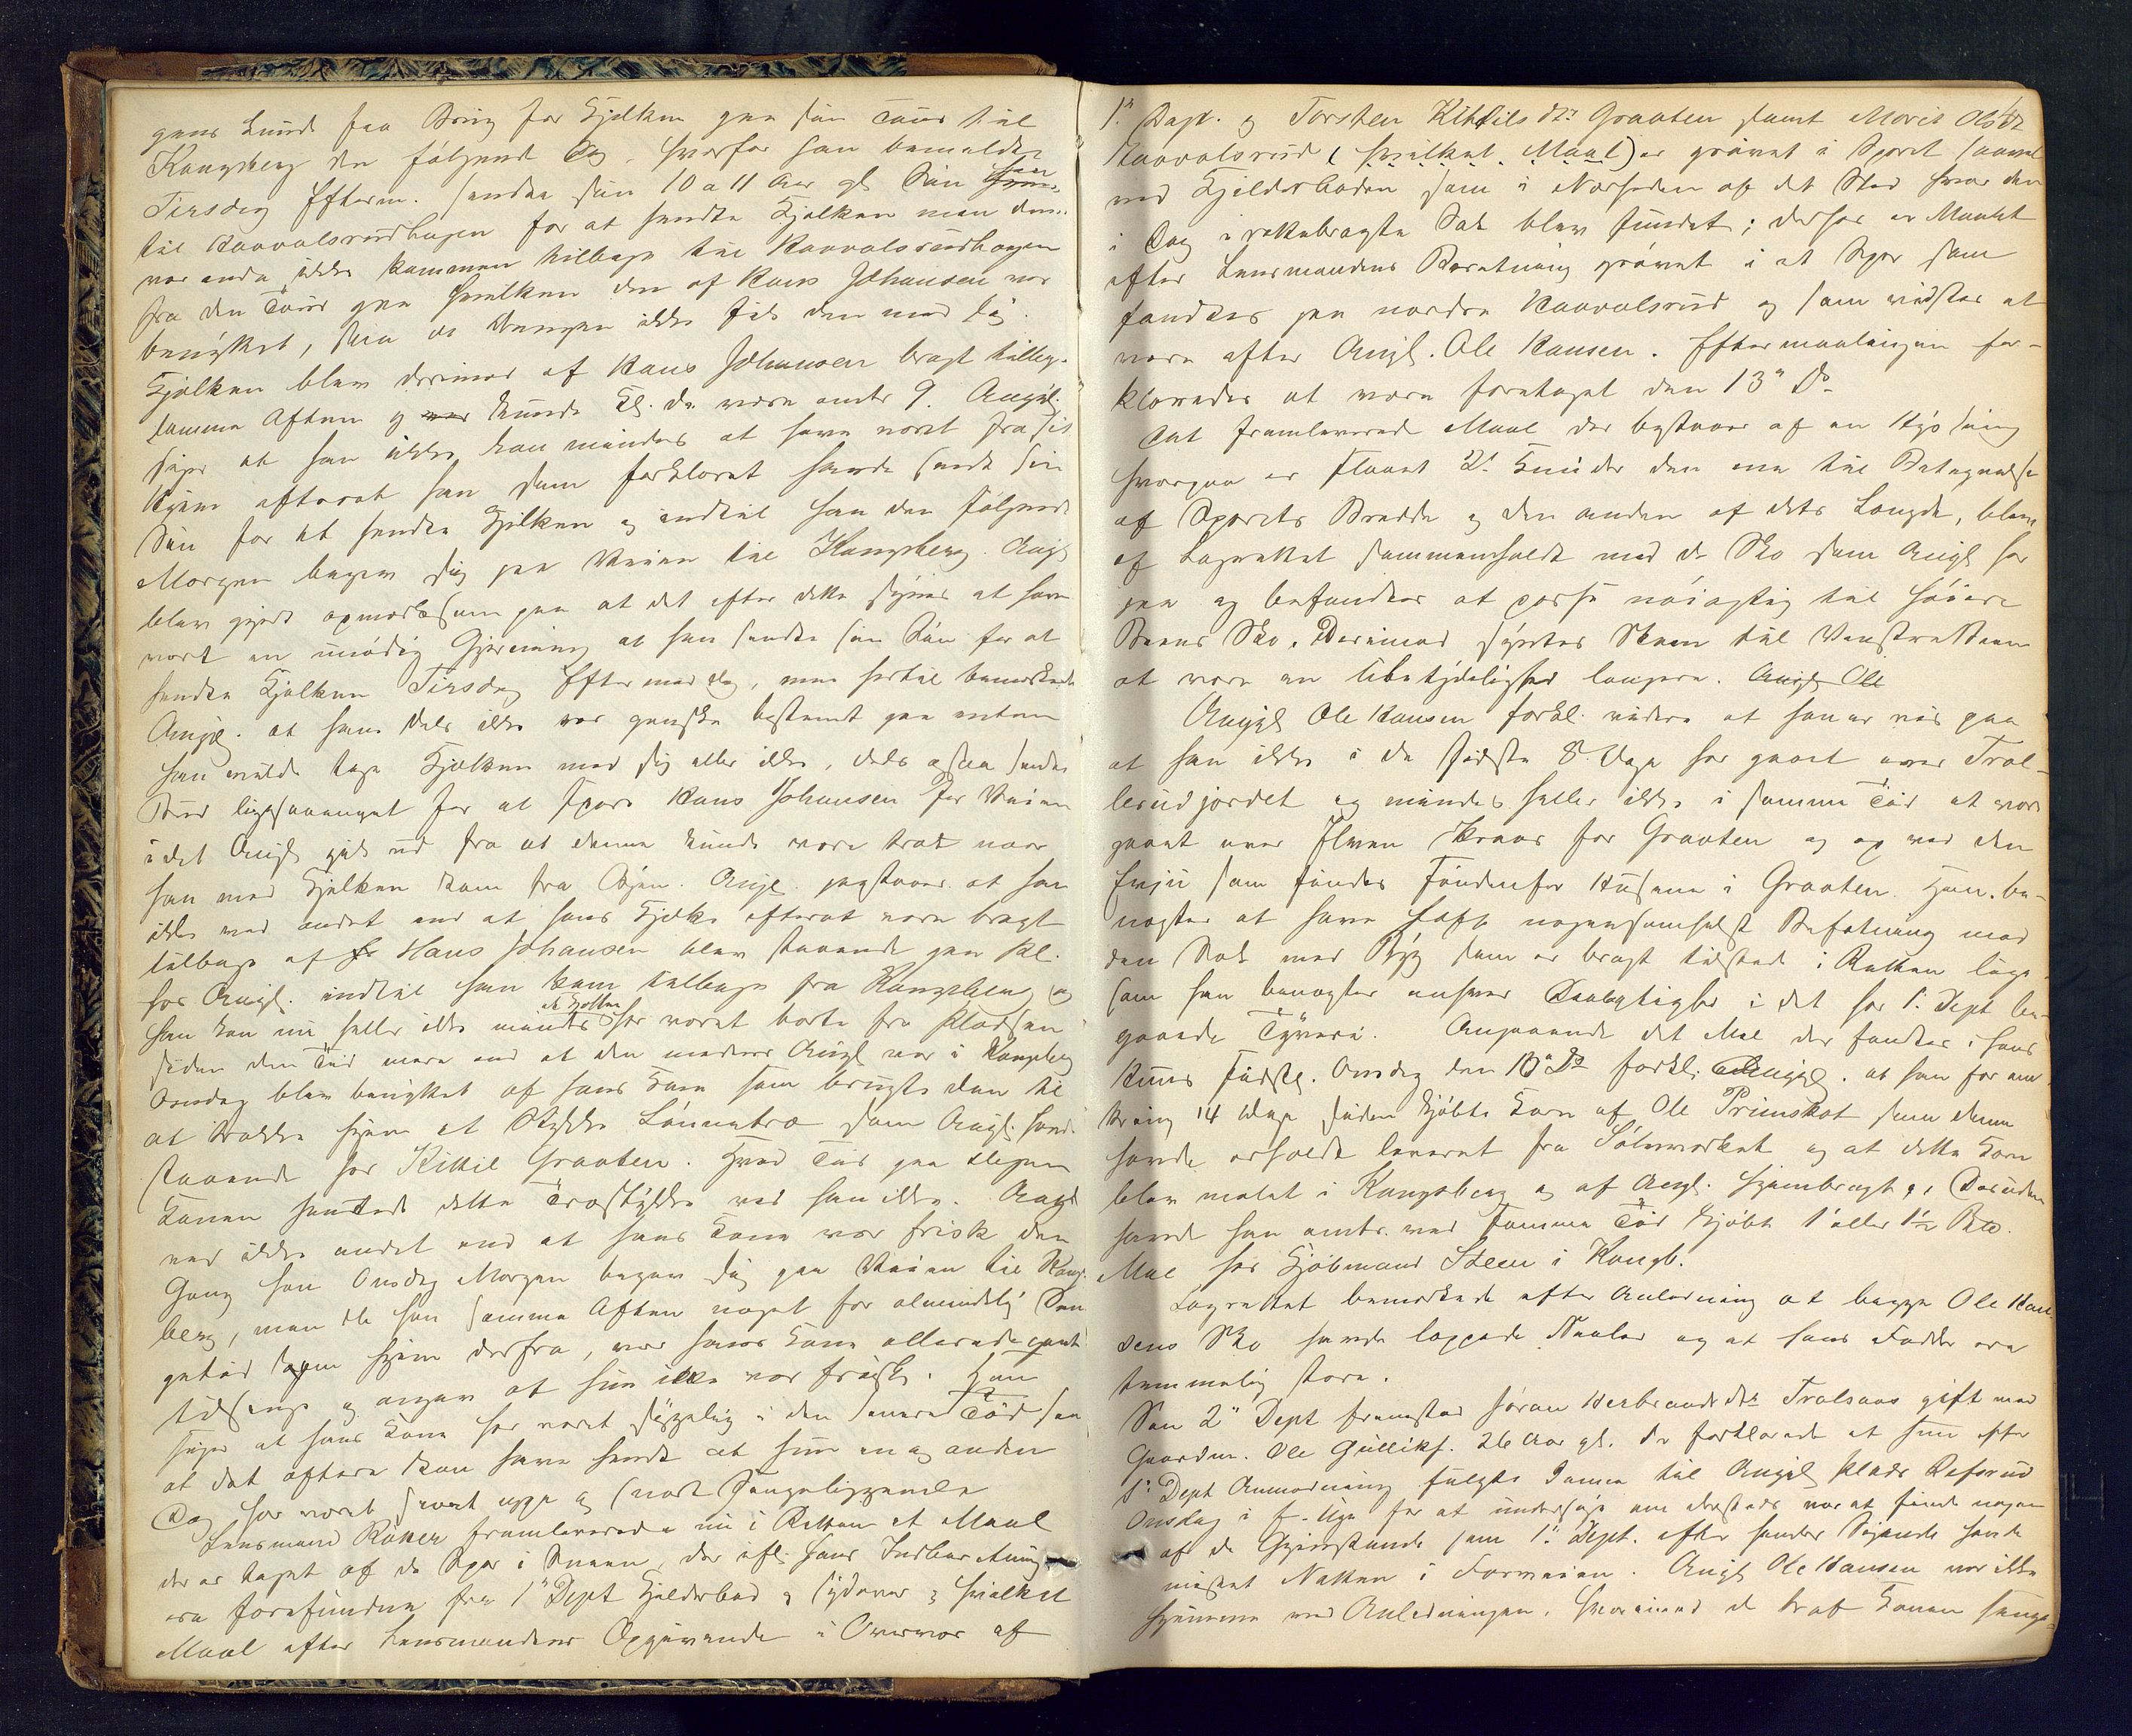 gens kunde faa Brug for Kjelken paa sin Tour til
Kongsberg den følgende Dag, hvorfor han bemeldte
Tirsdag Efterm. sendte sin 10 a 11 Aar gl. Søn
til Raavalsrudhagen for at hendte Kjelken men den
var enda ikke kommen tilbage til Raavalsrudhagen
fra den Tour paa hvilken den af Hans Johansen var
benyttet, saa at Drengen ikke fik den med sig.
Kjelken blev derimod af Hans Johansen bragt tilbage
samme Aften og kunde Kl. da være omtr. 9. Angjl.
siger at han ikke kan mindes at have været fra sit
Hjem efterat han som forklaret havde sendt sin
Søn for at hendte Kjelken og indtil han den følgende
Morgen begav sig paa Veien til Kongsberg. Angjl.
blev gjort opmærksom paa at det efter dette synes at have
vært en unødig Gjerning at han sendte sin Søn for at
hendte Kjelken Tirsdag Eftermiddag, men hertil bemærkede
Angjl. at han dels ikke var ganske bestemt paa enten
han vilde tage Kjelken med sig eller ikke, dels ogsaa sendte
Bud ligesaameget for at spare Hans Johansen for Veien
idet Angjl. gik ud fra at denne kunde være træt naar
han med Kjelken kom fra Byen. Angjl. paastaar at han
ikke ved andet end at hans Kjelke efterat være bragt
tilbage af Hans Johansen blev staaende paa Pl.
hos Angjl. indtil han kom tilbage fra Kongsberg og
han kan nu heller ikke mindes at Kjelken har været borte fra Pladsen
siden den Tid mere end at den medens Angjl. var i Kongsberg
Onsdag blev benyttet af hans Kone som brugte den til
at trække hjem et Stykke Lønnetræ som Angjl. havde
staaende hos Kittil Graaten. Hvad Tid paa Dagen
Konen hentede dette Træstykke ved han ikke. Angjl.
ved ikke andet end at hans Kone var frisk den
Gang han Onsdag Morgen begav sig paa Veien til Kongs-
berg, men da han samme Aften noget før almindelig Sen-
getid kom hjem derfra, var hans Kone allerede gaaet
tilsengs og angav at hun ikke var frisk. Han
siger at hans Kone har været sygelig i den senere Tid saa
at det oftere kan have hendt at hun en og anden
Dag har været snart oppe og snart Sengeliggende
Lensmand Räken fremleverede nu i Retten et Maal
der er taget af de Spor i Sneen, der ifl. hans Indberetning
ere forefundne fra 1ste Dept Kjelderbod og sydover; hvilket
Maal efter Lensmandens Opgivende i Overvær af
1ste Dept. og Torsten Kittilsdtr Graaten samt Marit Olsdtr
Raavalsrud (hvilket Maal) er prøvet i Sporet saavel
ved Kjelderboden som i Nærheden af det Sted hvor den
i Dag i rettebragte Sæk blev fundet; derhos er Maalet
efter Lensmandens Beretning prøvet i et Spor som
fandtes paa nordre Raavalsrud og som vidstes at
være efter Angjl. Ole Hansen. Eftermaalingen for-
klaredes at være foretaget den 13de Ds.
Det fremleverede Maal der bestaaer af en Hyssing
hvorpaa er slaaet 2de Knuder den ene til Betegnelse
af Sporets Bredde og den anden af dets Længde, blev
af Lagrettet sammenholdt med de Sko som Angjl. har
paa og befandtes at passe nøiagtig til høire
Beens Sko. Derimod syntes Skoen til Venstre Been
at være en Ubetydelighed længere. Angjl. Ole
Angjl. Ole Hansen forkl. videre at han er vis paa
at han ikke i de sidste 8 Dage har gaaet over Trol-
lerudjordet og mindes heller ikke i samme Tid at være
gaaet over Elven tværs for Graaten og op ved den
Evju som findes søndenfor Husene i Graaten. Han be-
nægter at have havt nogensomhelst Befatning med
den Sæk med Byg som er bragt tilstede i Retten lige-
som han benægter enhver Delagtighed i det hos 1ste Dept be-
gaaede Tyveri. Angaaende det Mel der fandtes i hans
Huus sidstl. Onsdag den 13de Ds. forkl. Angjl. at han for om-
kring 14 Dage siden kjøbte Korn af Ole Primskot som denne
havde erholdt leveret fra Sølvværket og at dette Korn
blev malet i Kongsberg og af Angjl. hjembragt; Desuden
havde han omtr. ved samme Tid kjøbt 1 eller 1½ Btd.
Mel hos Kjøbmand Steen i Kongb.
Lagrettet bemærkede efter Anledning at begge Ole Han-
sens Sko havde lappede Saaler og at hans Fødder ere
temmelig store.
Som 2det Dept fremstod Jøran Herbrandsdtr Tralsaas gift med
Gaardm. Ole Gulliks. 26 Aar gl. De forklarede at hun efter
1ste Dept Anmodning fulgte denne til Angjl. Plads Refsrud
Onsdag i f. Uge for at undersøge om dersteds var at finde nogen
af de Gjenstande som 1ste Dept. efter hendes Sigende havde
mistet Natten i Forveien. Angjl. Ole Hansen var ikke
hjemme ved Anledningen, hvorimod de traf Konen senge-